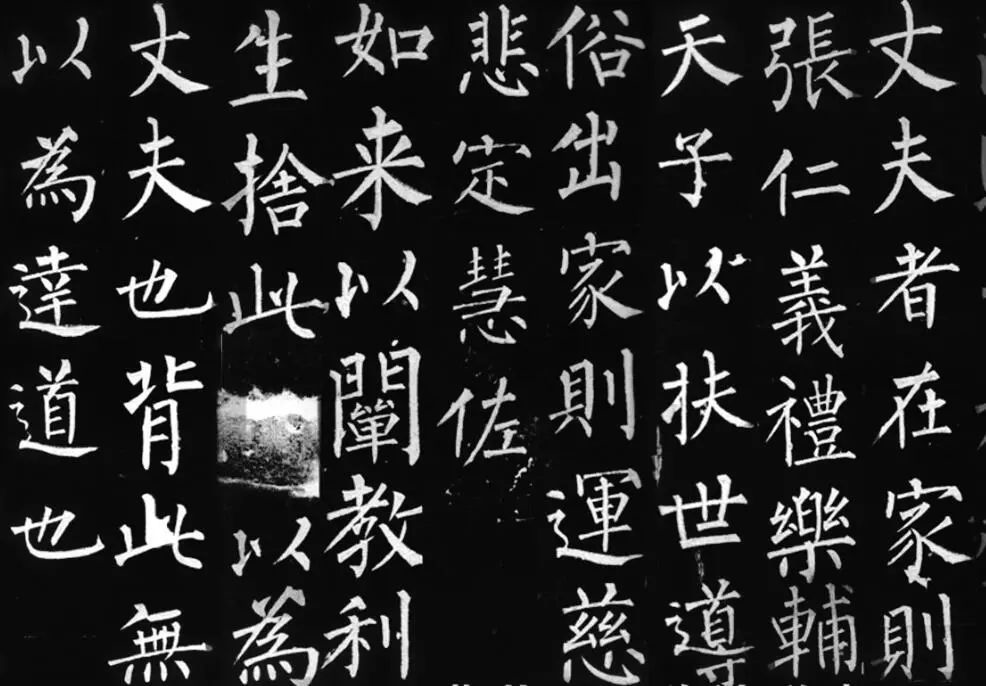 丈夫者在家則
張仁義禮樂輔
天子以扶世導
俗出家則運慈
悲定慧佐
如来以闡教利
生捨此以為
丈夫也背此無
以為達道也